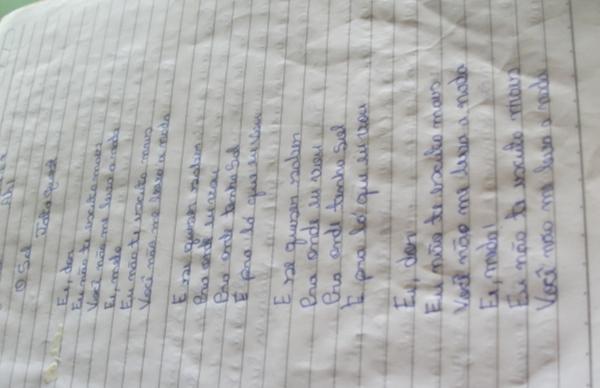 O Sol
Ei, dor
Eu não te escuto mais
Você não me leva a nada
Ei, medo
Eu não te escuto mais
Você não me leva a nada
E se quiser saber
Pra onde eu vou
Pra onde tenha Sol
É pra lá que eu vou
E se quiser saber
Pra onde eu vou
Pra onde tenha Sol
É pra lá que eu vou
Ei, dor
Eu não te escuto mais
Você não me leva a nada
Ei, medo!
Eu não te escuto mais
Você não me leva a nada